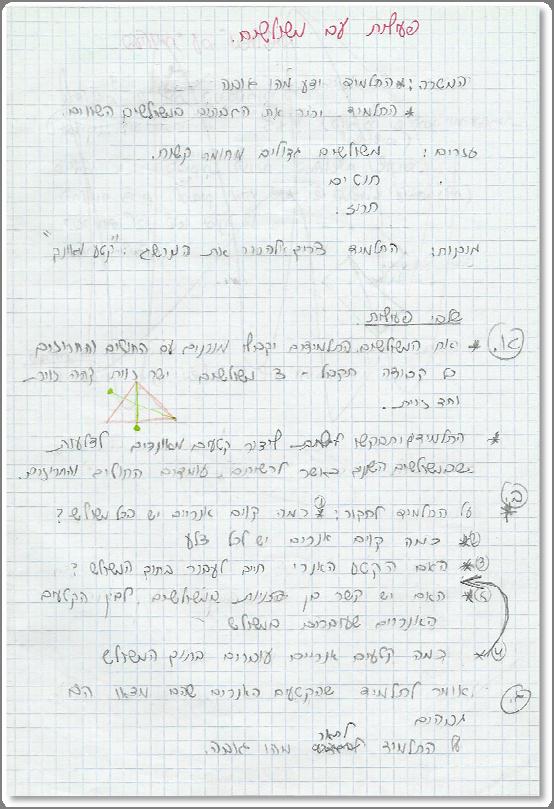 פעילות עם משולשים.
המטרה: * התלמיד ידע מהו גובה
* התלמיד יכיר את הגבהים במשולשים השונים.
עזרים: משולשים גדולים מחומר קשיח.
חוטים
חרוז.
מוכנות: התלמיד צריך להכיר את המושג: "קטע מאונך"
שלבי פעילות.
א. * את המשולשים התלמידים יקבלו מוכנים עם החוטים והחרוזים
כל קבוצה תקבל - 3 משולשים ישר זוית קהה זוית
וחד זוית.
* התלמידים יתבקשו ליצור קטעים מאונכים לצלעות
שבמשולשים השונים כאשר לרשותם עומדים החוטים והחרוזים.
ב. * על התלמיד לחקור: 1 כמה קוים אנכיים יש בכל משולש?
2 * כמה קוים אנכיים יש לכל צלע
3 * האם הקטע האנכי חייב לעבור בתוך המשולש?
5 * האם יש קשר בין הזויות במשולשים לבין הקטעים
האנכיים שעוברים במשולש
4 * כמה קטעים אנכיים עוברים בתוך המשולש
ג. אומר לתלמיד שהקטעים האנכיים שהם מצאו הם
גבהים
על התלמיד לתאר מהו גובה.